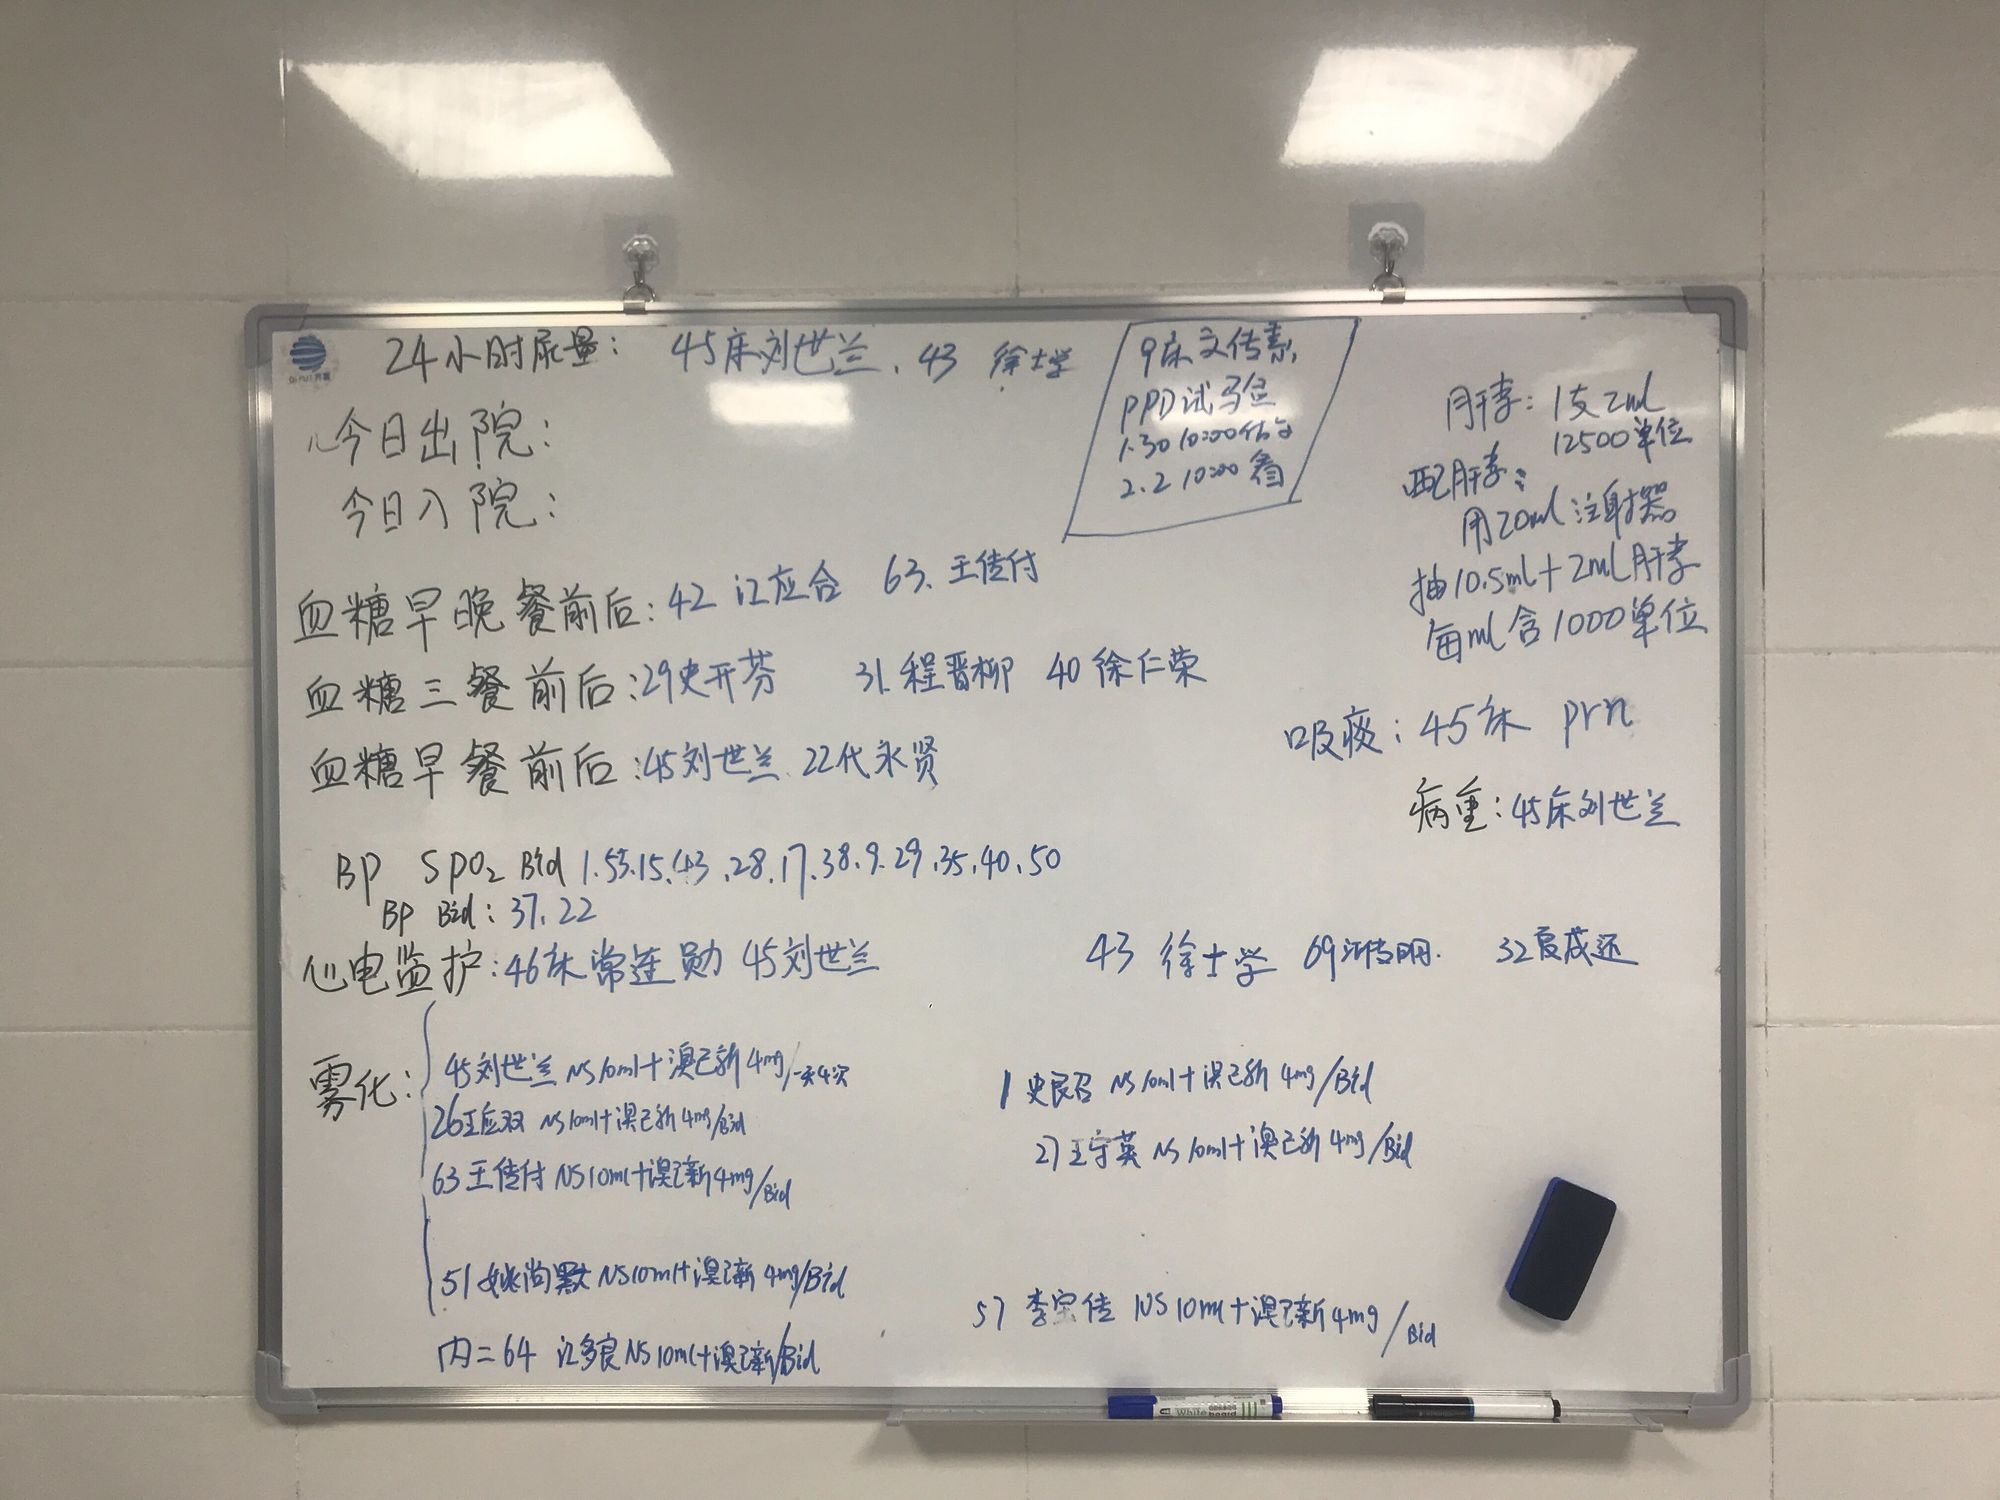 24小时尿量： 45床刘世兰、43 徐士学
9床文传素
PPD试验
1.30 10:00
2.2 10:00 看
肝素：1支2ml
12500单位
配肝素：
用20ml注射器
抽10.5ml+2ml肝素
每ml含1000单位
今日出院：
今日入院：
血糖早晚餐前后：42 江应合 63.王传付
血糖三餐前后：29史开芬 31.程晋柳 40徐仁荣
血糖早餐前后：45刘世兰 22代永贤
吸痰：45床 prn
病重：45床刘世兰
BP SPO₂ Bid 1.53.15.43.28.17.38.9.29.35.40.50
BP Bid：37.22
心电监护：46床常连勋 45刘世兰 43 徐士学 69汪传明 32夏成还
雾化：
45刘世兰 NS10ml+澳己新4mg/一天4次
1 史民召 NS10ml+澳己新4mg/Bid
26王应双 NS10ml+澳己新4mg/Bid
27王守英 NS10ml+澳己新4mg/Bid
63王传付 NS10ml+澳己新4mg/Bid
51姚尚默 NS10ml+澳己新4mg/Bid
57 李宝传 NS10ml+澳己新4mg/Bid
内二64 江多良 NS10ml+澳己新/Bid
Whiteboard